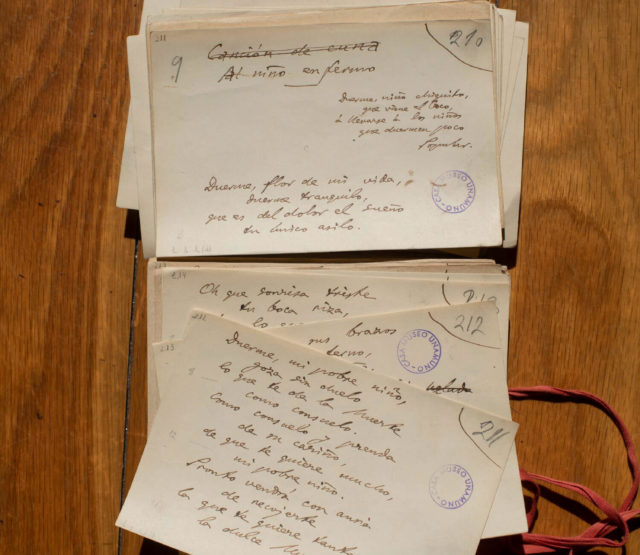 211
210
9
Canción de cuna
Al niño enfermo
Duerme, niño chiquito,
que viene el Coco,
á llevarse á los niños
que duermen poco
Popular.
Duerme, flor de mi vida,
duerme tranquilo,
que es del dolor el sueño
tu único asilo.
CASA MUSEO UNAMUNO
214
Oh que sonrisa triste
tu boca riza,
212
sus brazos
CASA MUSEO UNAMUNO
213
211
Duerme, mi pobre niño,
goza sin duelo
lo que te da la Muerte
como consuelo.
Como consuelo y prenda
de su cariño,
de que te quiere mucho,
mi pobre niño.
Pronto vendrá con ansia
de recojerte
la que te quiere tanto
la dulce
CASA MUSEO UNAMUNO